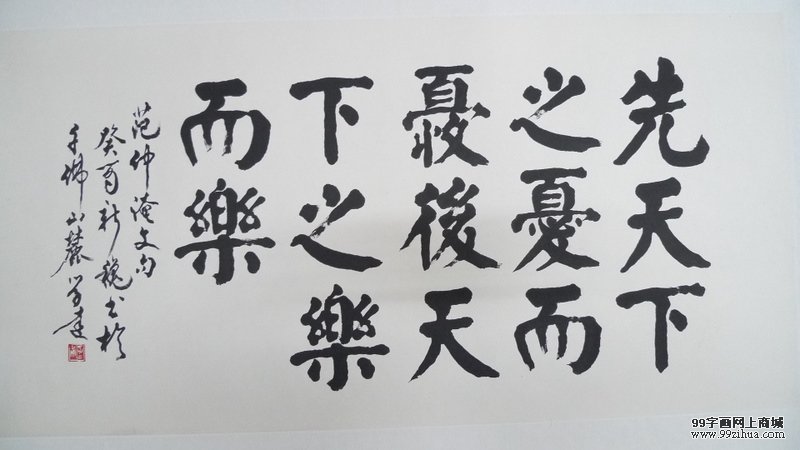 先天下
之憂而
憂後天
下之樂
而樂
范仲淹文句
癸酉新魏書於
千佛山麓学達
99字画网上商城
www.99zihua.com